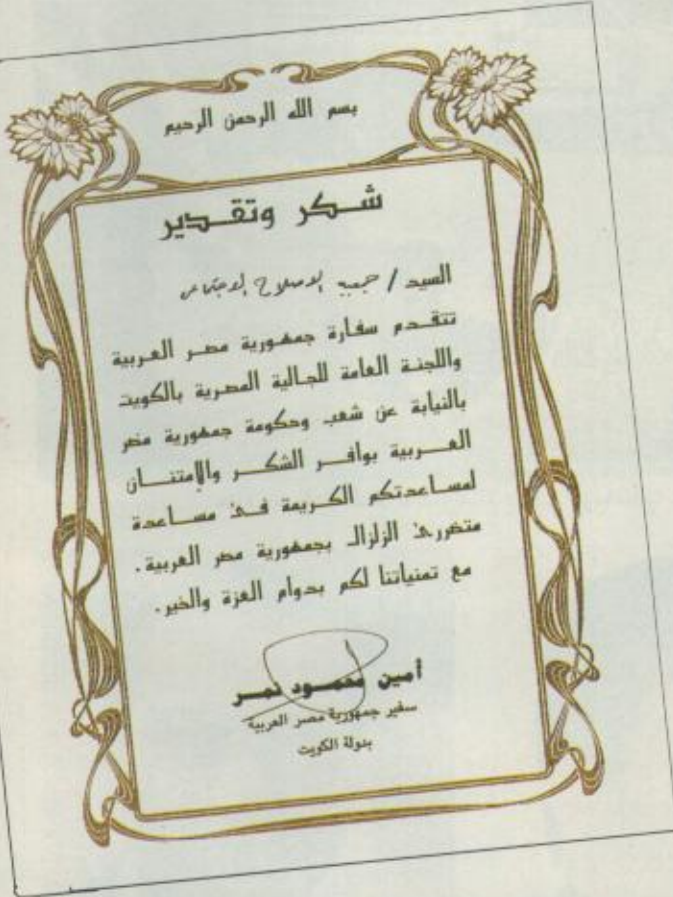 بسم الله الرحمن الرحيم
شكر وتقدير
السيد / جمعية الاصلاح الاجتماعي
تتقدم سفارة جمهورية مصر العربية
واللجنة العامة للجالية المصرية بالكويت
بالنيابة عن شعب وحكومة جمهورية مصر
العربية بوافر الشكر والإمتنان
لمساعدتكم الكريمة فى مساعدة
متضررى الزلزال بجمهورية مصر العربية.
مع تمنياتنا لكم بدوام العزة والخير.
أمين محمود نمر
سفير جمهورية مصر العربية
بدولة الكويت